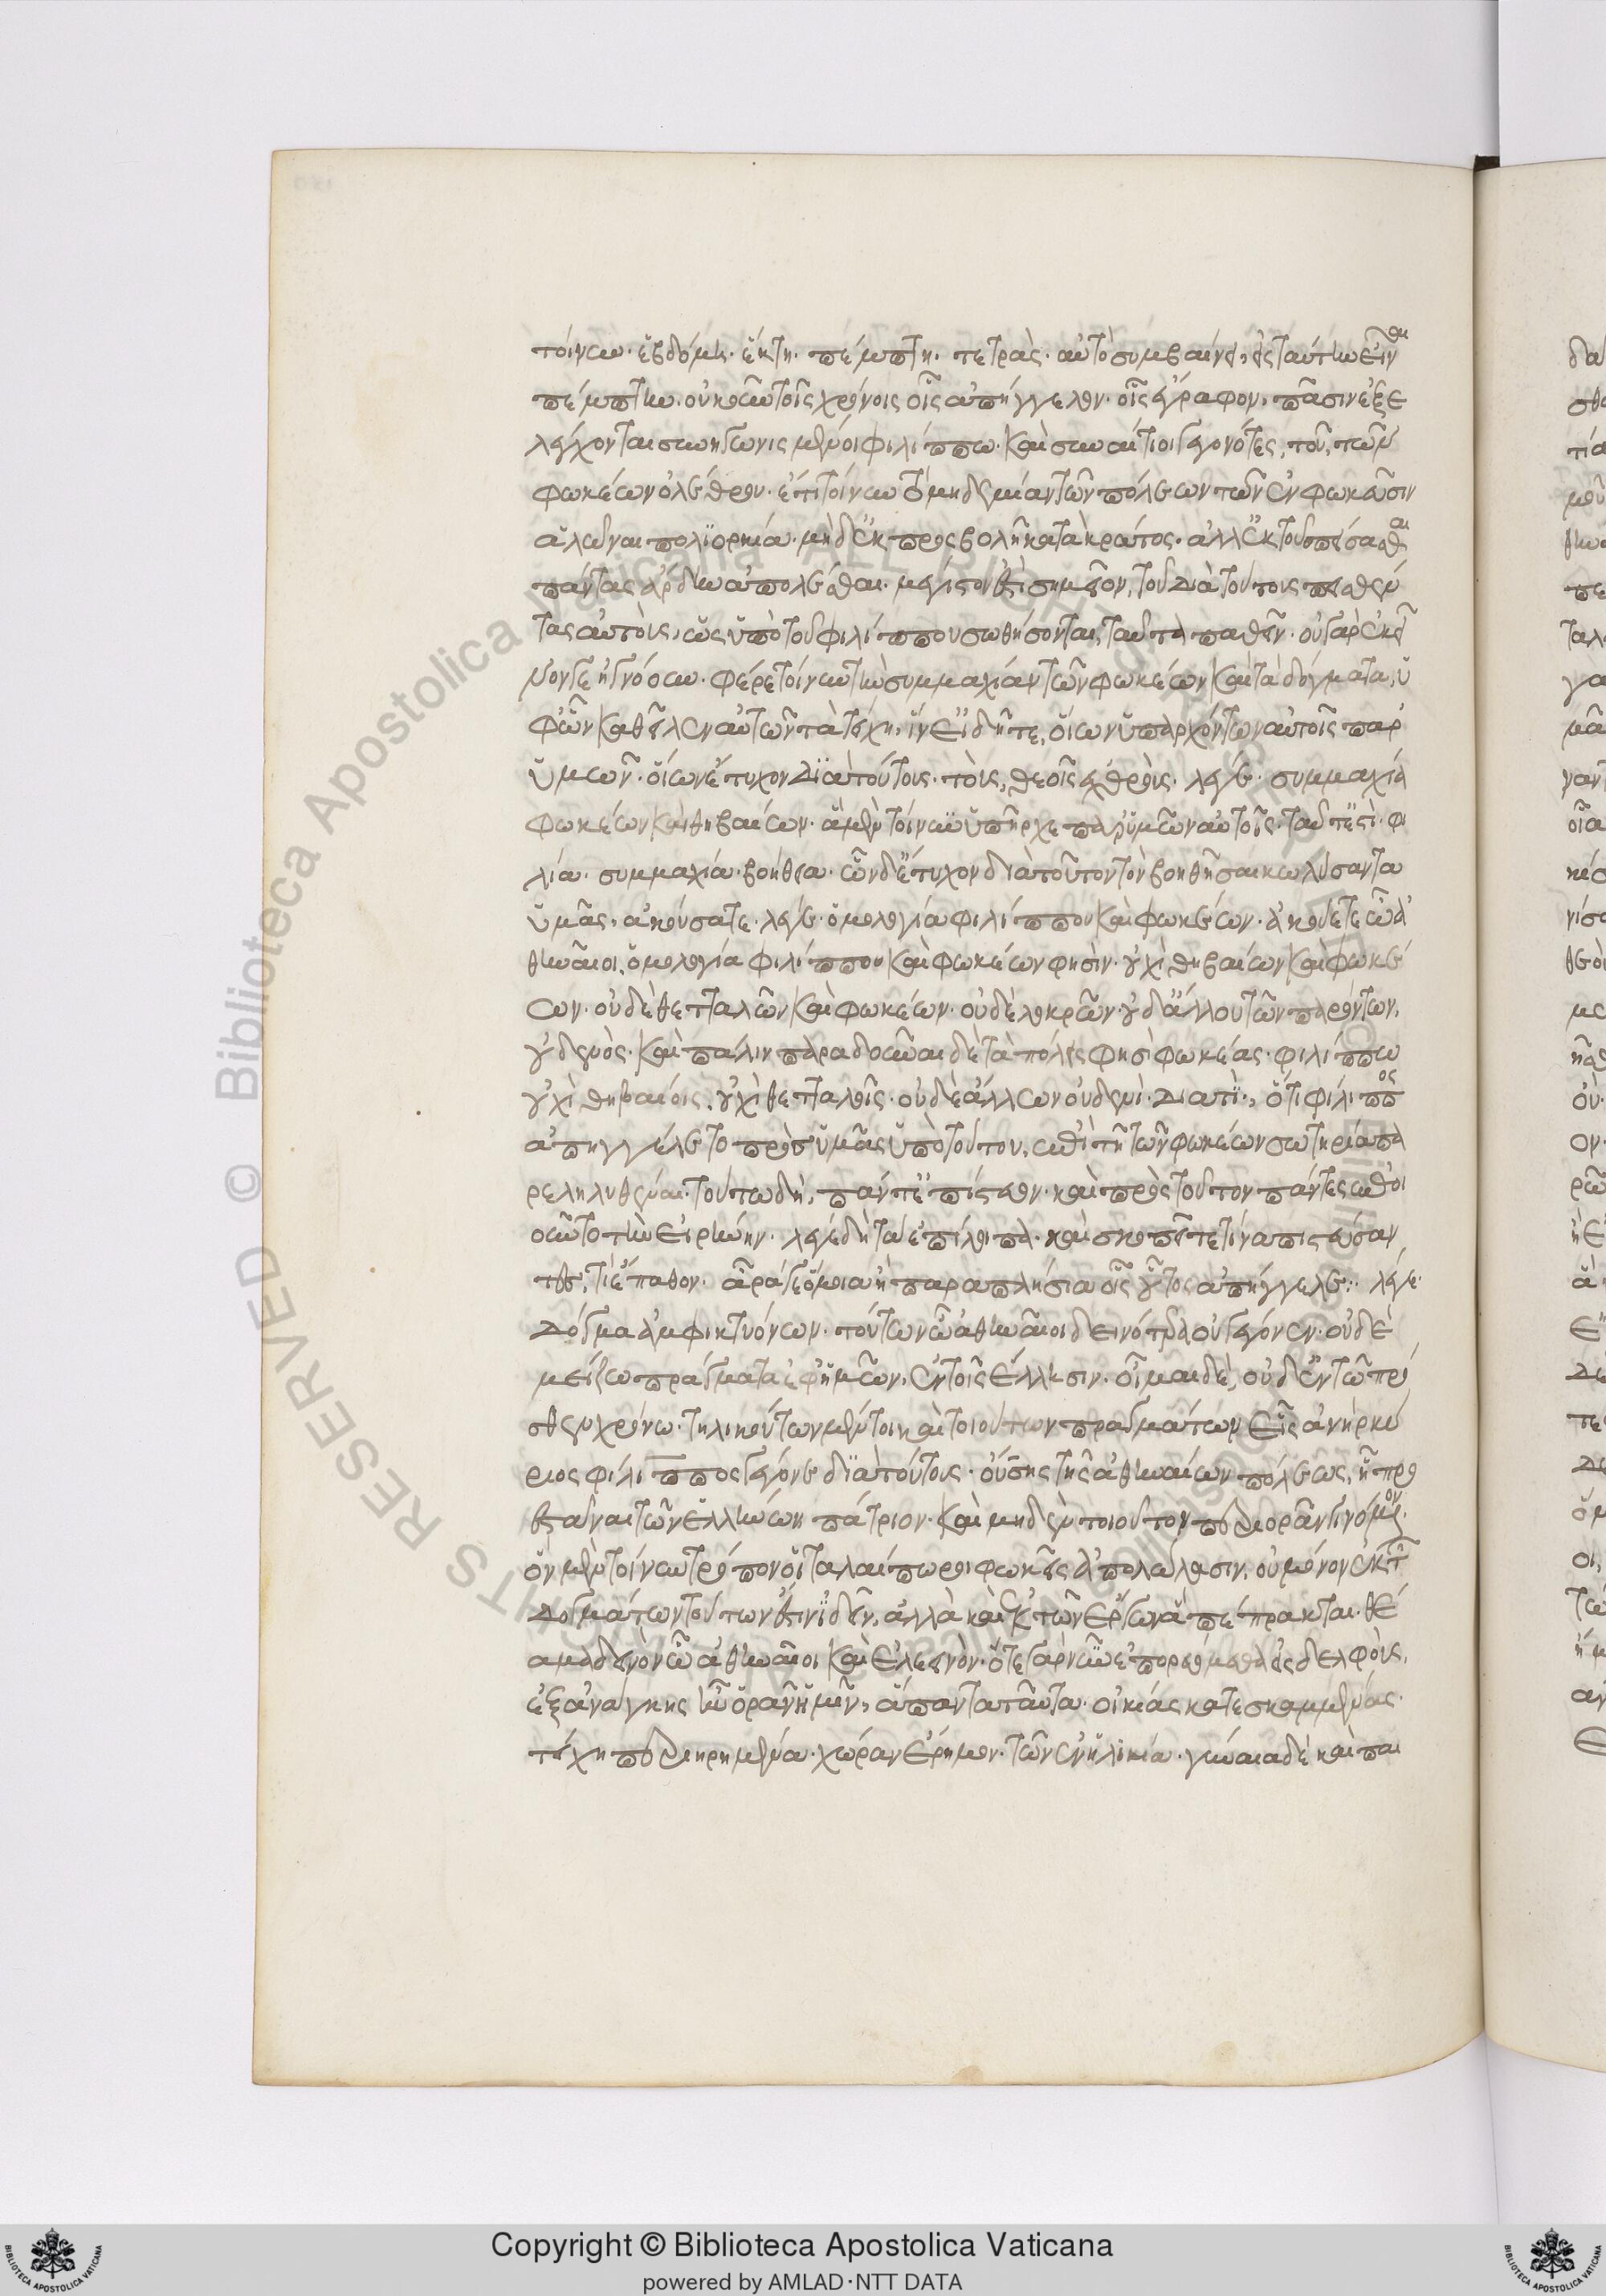 τοίνυν· ἑβδόμη· ἕκτη· πέμπτη· τετράς· αὐτὸ συμβαίνει, εἰς ταύτην εἶναι
πέμπτην. οὐκοῦν τοῖς χρόνοις οἷς ἀπήγγελλον· οἷς ἔγραφον, πᾶσιν ἐξε
λέγχονται συνηγωνισμένοι φιλίππω· καὶ συναίτιοι γεγονότες, τοῦ, τῶν
φωκέων ὀλέθρου. ἔτι τοίνυν τὸ μηδεμίαν τῶν πόλεων τῶν ἐν φωκεῦσιν
ἁλῶναι πολϊορκία· μὴδ' ἐκ προσβολῆς κατὰ κράτος· ἀλλ' ἐκ τοῦ σπείσασθαι
πάντας ἄρδην ἀπολέσθαι· μέγιστον ἐστὶ σημεῖον, τοῦ διὰ τούτους πεισθέν
τας αὐτοὺς, ὡς ὑπὸ τοῦ φιλίππου σωθήσονται, ταῦτα παθεῖν. οὐ γὰρ ἐκεῖ
νον γε ἠγνόουν· φέρε τοίνυν τὴν συμμαχίαν τῶν φωκέων καὶ τὰ δόγματα, ὑ
φ' ὧν καθεῖλον αὐτῶν τὰ τείχη, ἵν' εἰδῆτε, οἵων ὑπαρχόντων αὐτοῖς παρ'
ὑμῶν· οἵων ἔτυχον διὰ τούτους· τοὺς, θεοῖς ἐχθρούς· λέγε· συμμαχία
φωκέων καὶ θηβαίων· ἃ μὲν τοίνυν ὑπῆρχε παρ' ὑμῶν αὐτοῖς· ταῦτ' ἐστί· φι
λία· συμμαχία· βοήθεια· ὧν δ' ἔτυχον διὰ τοῦτον τὸν βοηθῆσαι κωλύσαντα
ὑμᾶς, ἀκούσατε. λέγε· ὁμολογία φιλίππου καὶ φωκέων· ἀκούετε ὦ ἀ
θηναῖοι, ὁμολογία φιλίππου καὶ φωκέων φησίν· οὐχὶ θηβαίων καὶ φωκέ
ων· οὐδὲ θετταλῶν καὶ φωκέων· οὐδὲ λοκρῶν· οὐδ' ἄλλου τῶν παρόντων,
οὐδενός· καὶ πάλιν παραδοῦναι δὲ τὰς πόλεις φησὶ φωκέας· φιλίππω
οὐχὶ θηβαίοις, οὐχὶ θετταλοῖς· οὐδὲ ἄλλων οὐδενί· διατί·, ὅτι φίλιππος
ἀπηγγέλλετο πρὸς ὑμᾶς ὑπὸ τούτου, ἐπὶ τῆ τῶν φωκέων σωτηρία πα
ρεληλυθέναι· τούτω δὴ, πάντ' ἐπίστευον· καὶ πρὸς τοῦτον πάντες ἐποι
οῦντο τὴν εἰρήνην. λέγε δὴ τὰ ἐπίλοιπα· καὶ σκοπεῖτε τί πιστεύσαν
τες, τί ἔπαθον. ἆρά γε ὅμοια ἢ παραπλήσια οἷς οὗτος ἀπήγγελλε: λέγε·
δόγμα ἀμφικτυόνων· τούτων ὦ ἀθηναῖοι δεινότερα οὐ γέγονεν· οὐδὲ
μείζω πράγματα ἐφ' ἡμῶν, ἐν τοῖς ἕλλησιν· οἶμαι δὲ, οὐδ' ἐν τῶ πρό
σθεν χρόνω· τηλικούτων μέντοι καὶ τοιούτων πραγμάτων εἷς ἀνὴρ κύ
ριος φίλιππος γέγονε διὰ τούτους· οὔσης τῆς ἀθηναίων πόλεως, ἧ προ
εστάναι τῶν ἑλλήνων πάτριον· καὶ μηδὲν τοιοῦτον περιορᾶν γινόμενον·
ὃν μὲν τοίνυν τρόπον οἱ ταλαίπωροι φωκεῖς ἀπολώλασιν, οὐ μόνον ἐκ τῶν
δογμάτων τούτων ἐστὶν ἰδεῖν, ἀλλὰ καὶ ἐκ τῶν ἔργων ἃ πέπρακται· θέ
αμα δεινὸν ὦ ἀθηναῖοι καὶ ἐλεεινόν· ὅτε γὰρ νῦν ἐπορευόμεθα εἰς δελφοὺς,
ἐξ ἀνάγκης ἦν ὁρᾶν ἡμῖν, ἅπαντα ταῦτα· οἰκίας κατεσκαμμένας·
τείχη περιηρημένα· χώραν ἔρημον· τῶν ἐν ἡλικία· γύναια δὲ καὶ παι